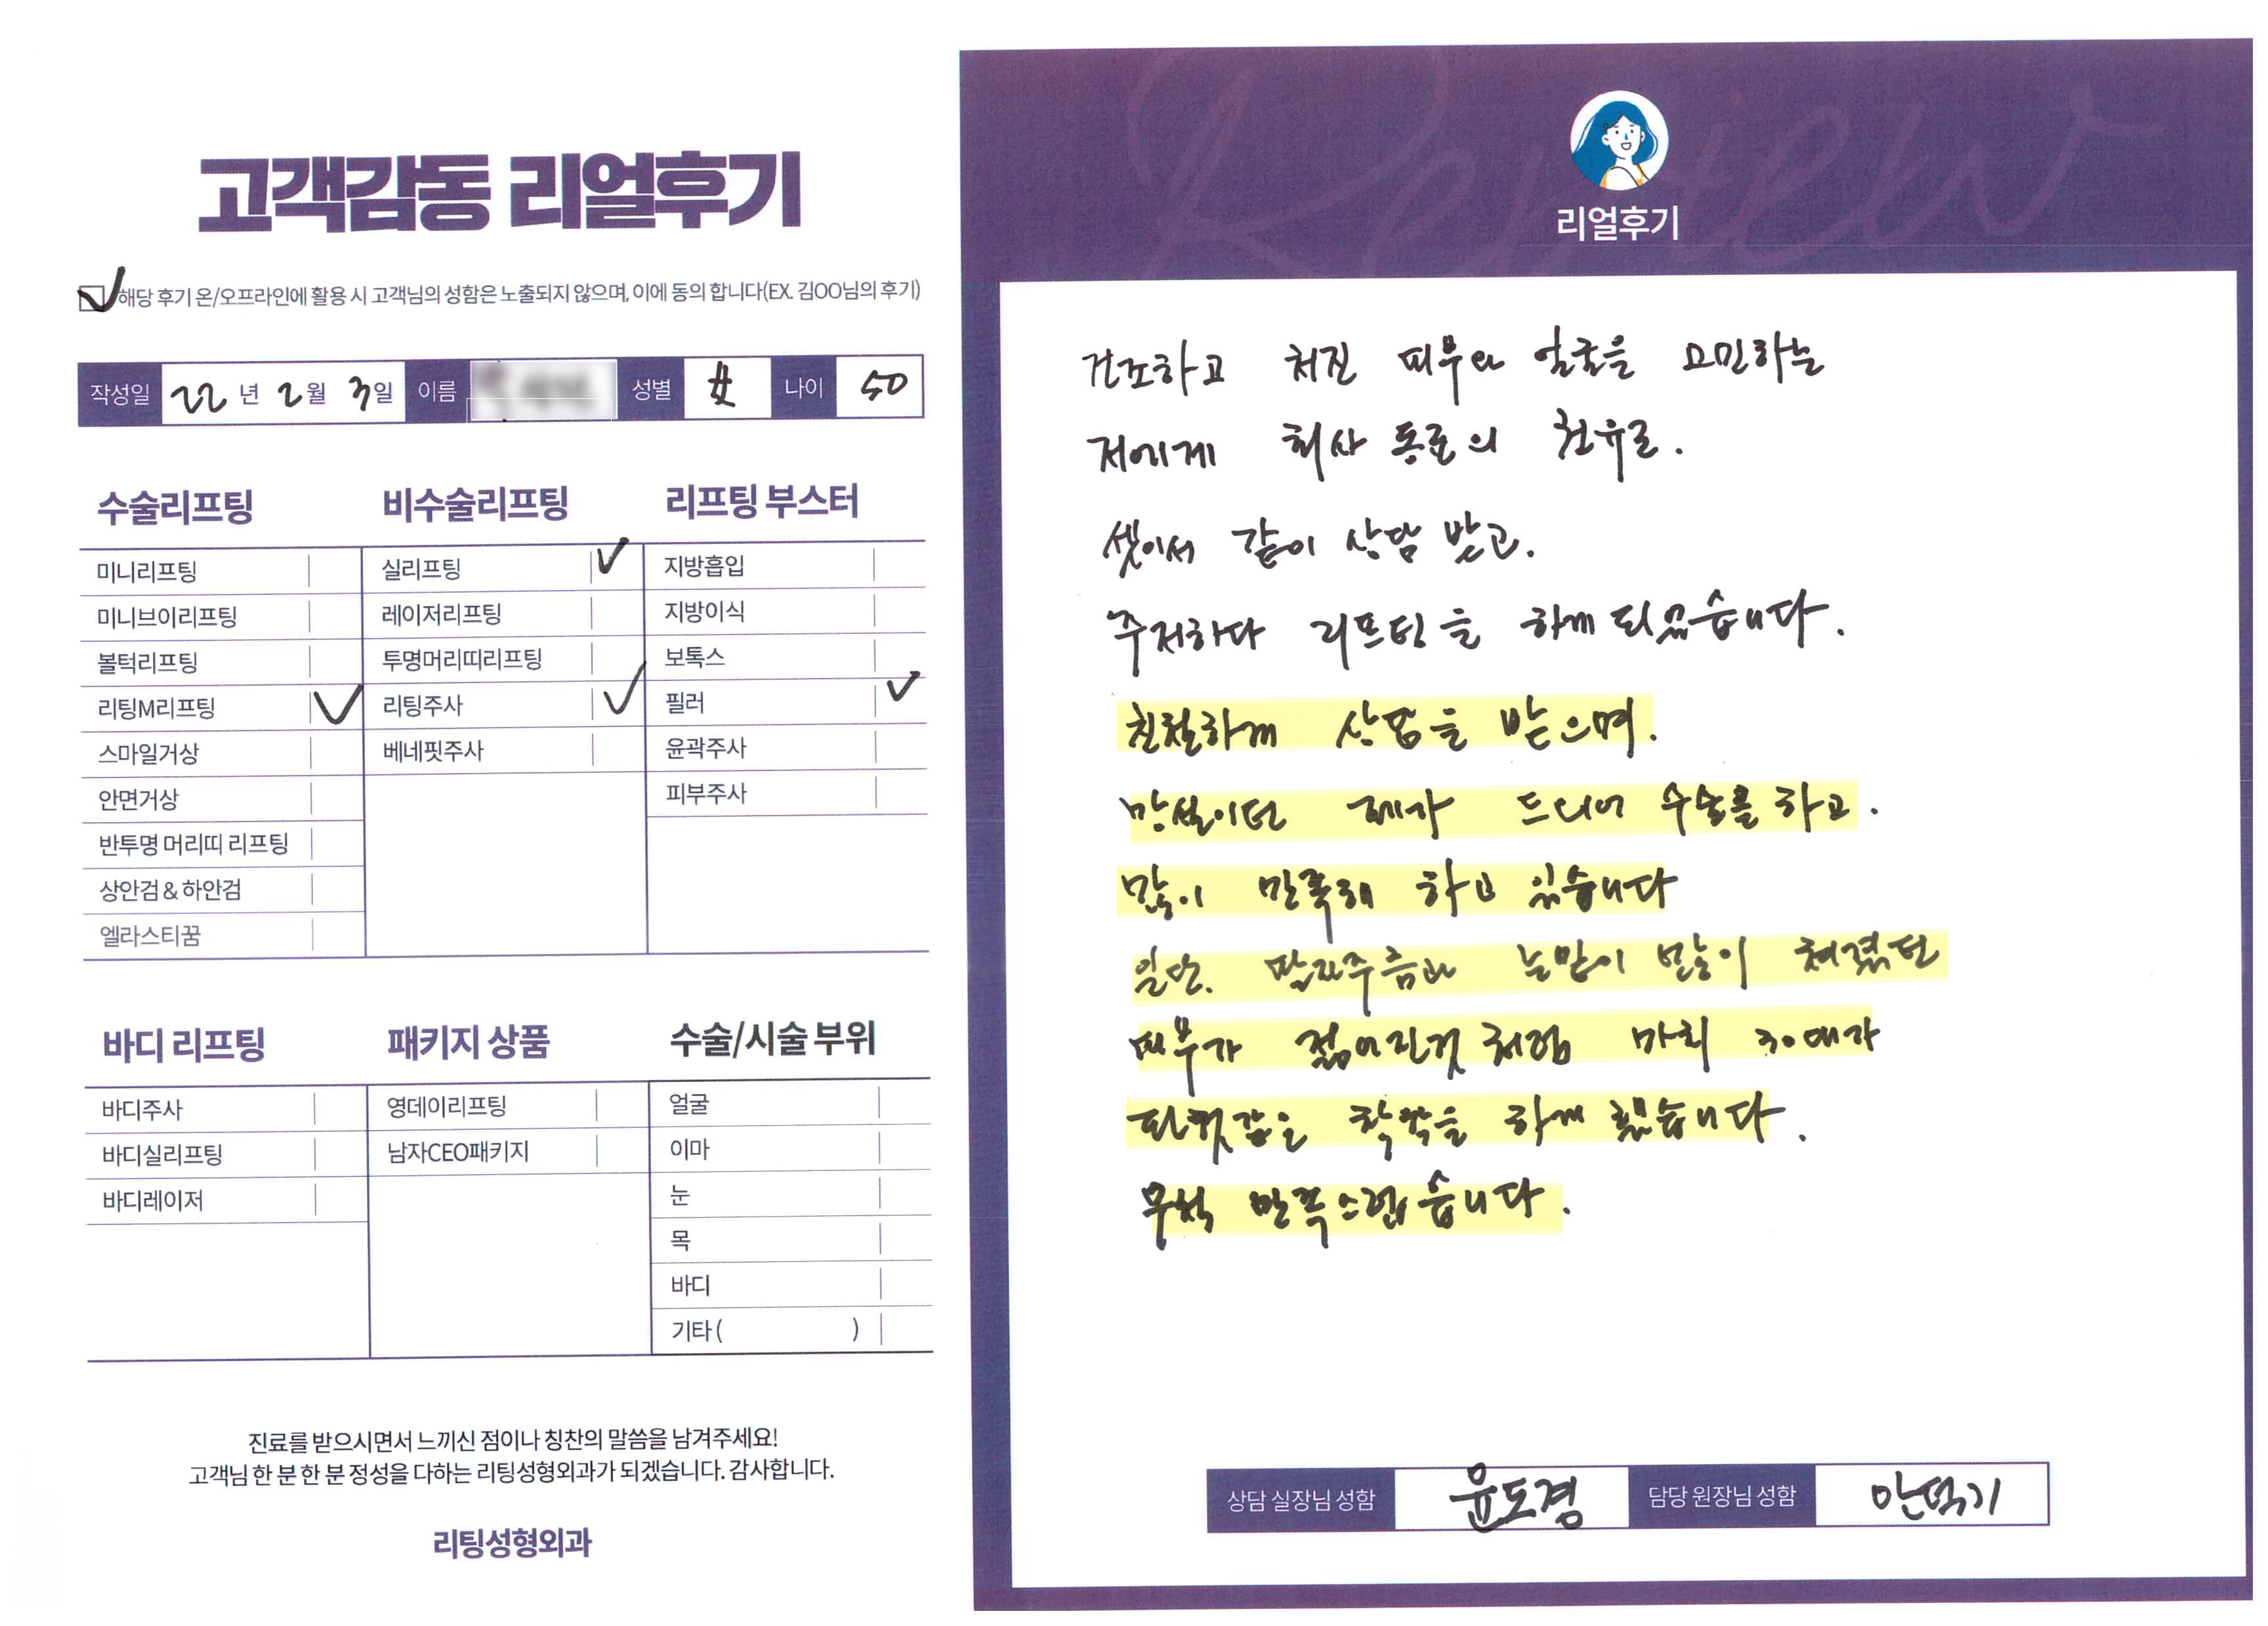 고객감동 리얼후기
해당 후기 온/오프라인에 활용 시 고객님의 성함은 노출되지 않으며, 이에 동의 합니다(EX. 김OO님의 후기)
작성일 22년 2월 3일 이름 성별 女 나이 50
수술리프팅
미니리프팅
미니브이리프팅
볼턱리프팅
리팅M리프팅
스마일거상
안면거상
반투명 머리띠 리프팅
상안검 & 하안검
엘라스티꿈
비수술리프팅
실리프팅
레이저리프팅
투명머리띠리프팅
리팅주사
베네핏주사
리프팅 부스터
지방흡입
지방이식
보톡스
필러
윤곽주사
피부주사
바디 리프팅
바디주사
바디실리프팅
바디레이저
패키지 상품
영데이리프팅
남자CEO패키지
수술/시술 부위
얼굴
이마
눈
목
바디
기타 ( )
진료를 받으시면서 느끼신 점이나 칭찬의 말씀을 남겨주세요!
고객님 한 분 한 분 정성을 다하는 리팅성형외과가 되겠습니다. 감사합니다.
리팅성형외과
Review
리얼후기
건조하고 처진 피부와 얼굴을 고민하는
저에게 회사 동료의 권유로.
셋이서 같이 상담 받고.
주저하다 리프팅을 하게 되었습니다.
친절하게 상담을 받으며.
망설이던 제가 드디어 수술을 하고.
많이 만족해 하고 있습니다
일단. 팔자주름과 눈밑이 많이 쳐졌던
피부가 젊어진것 처럼 마치 30대가
된것같은 착각을 하게 했습니다.
무척 만족스럽습니다.
상담 실장님 성함 윤도경 담당 원장님 성함 안덕기